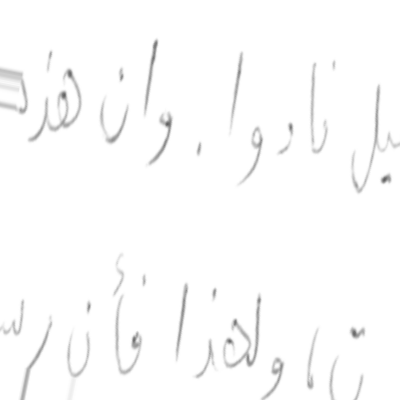 يل نادوا. وان هذ
ت، ولهذا فأن